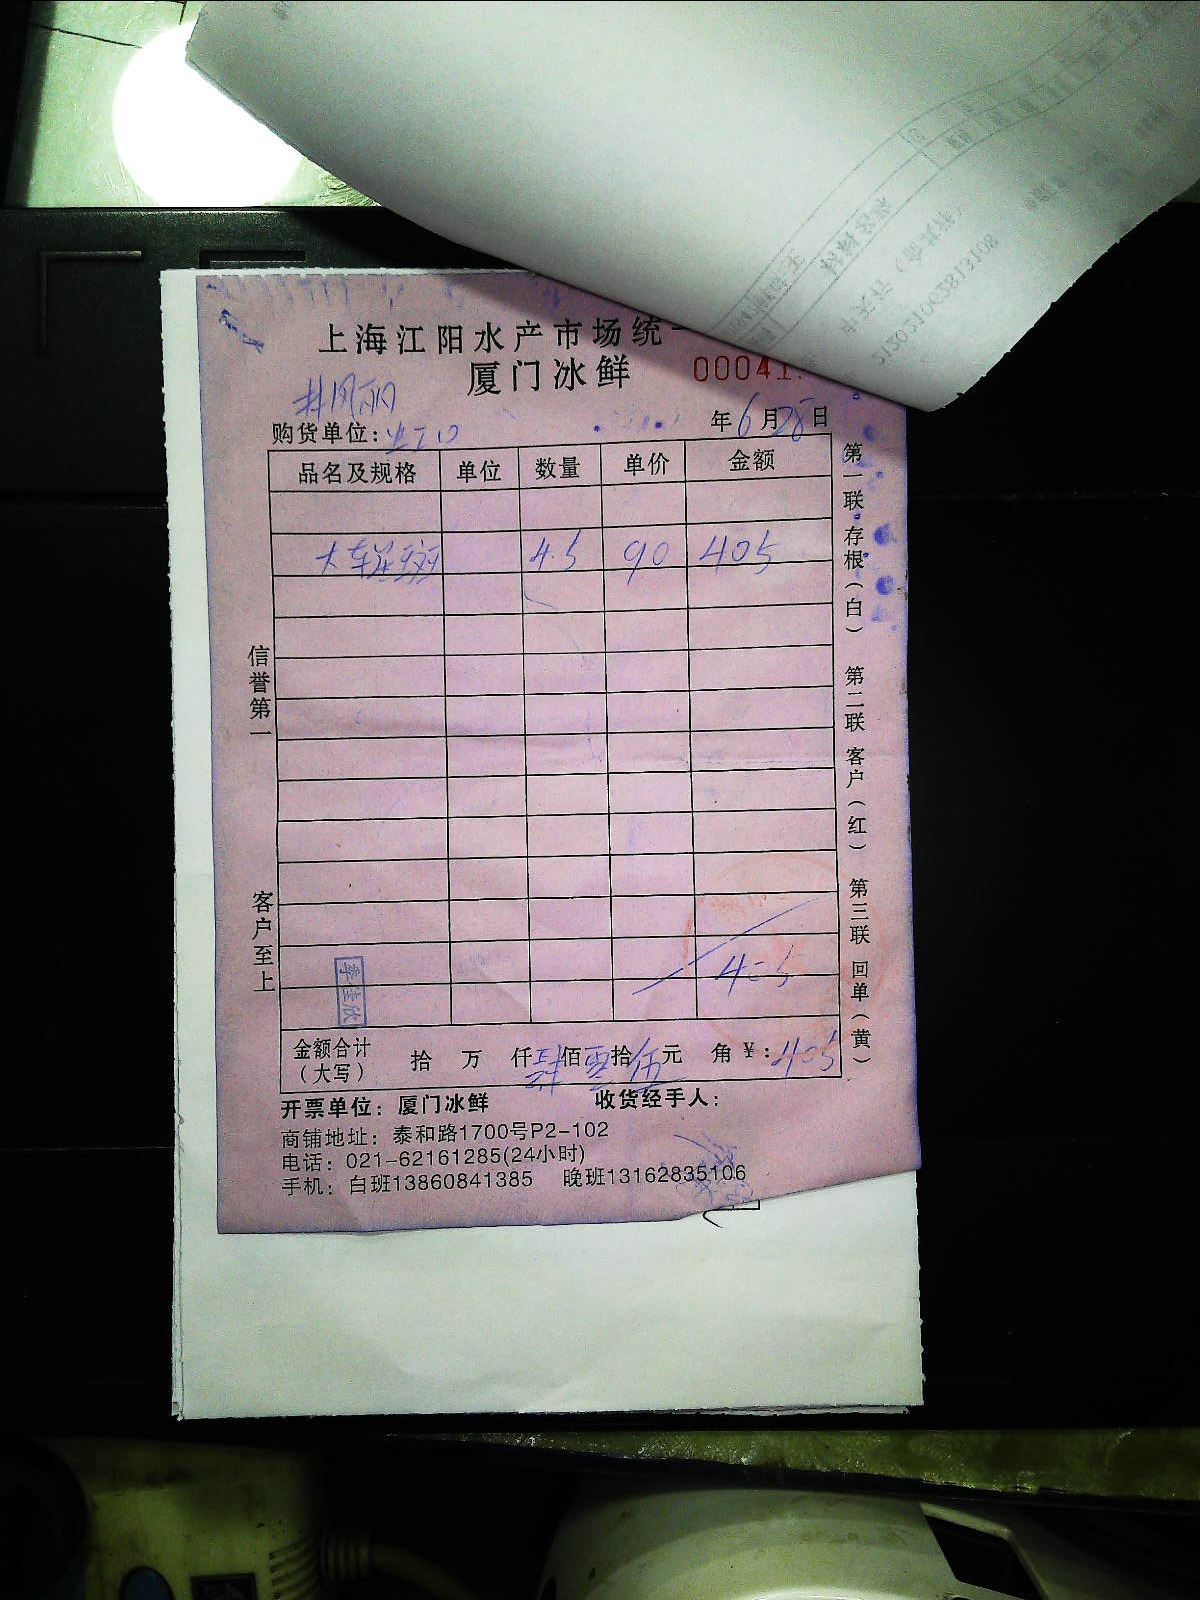 上海江阳水产市场统一
厦门冰鲜
00041
购货单位：
年6月28日
品名及规格 单位 数量 单价 金额
4.5 90 405
405
金额合计（大写） 拾 万 仟肆佰零拾伍元 角 ¥：405
开票单位：厦门冰鲜 收货经手人：
商铺地址：泰和路1700号P2-102
电话：021-62161285(24小时)
手机：白班13860841385 晚班13162835106
信誉第一
客户至上
第一联：存根（白） 第二联 客户（红） 第三联 回单（黄）